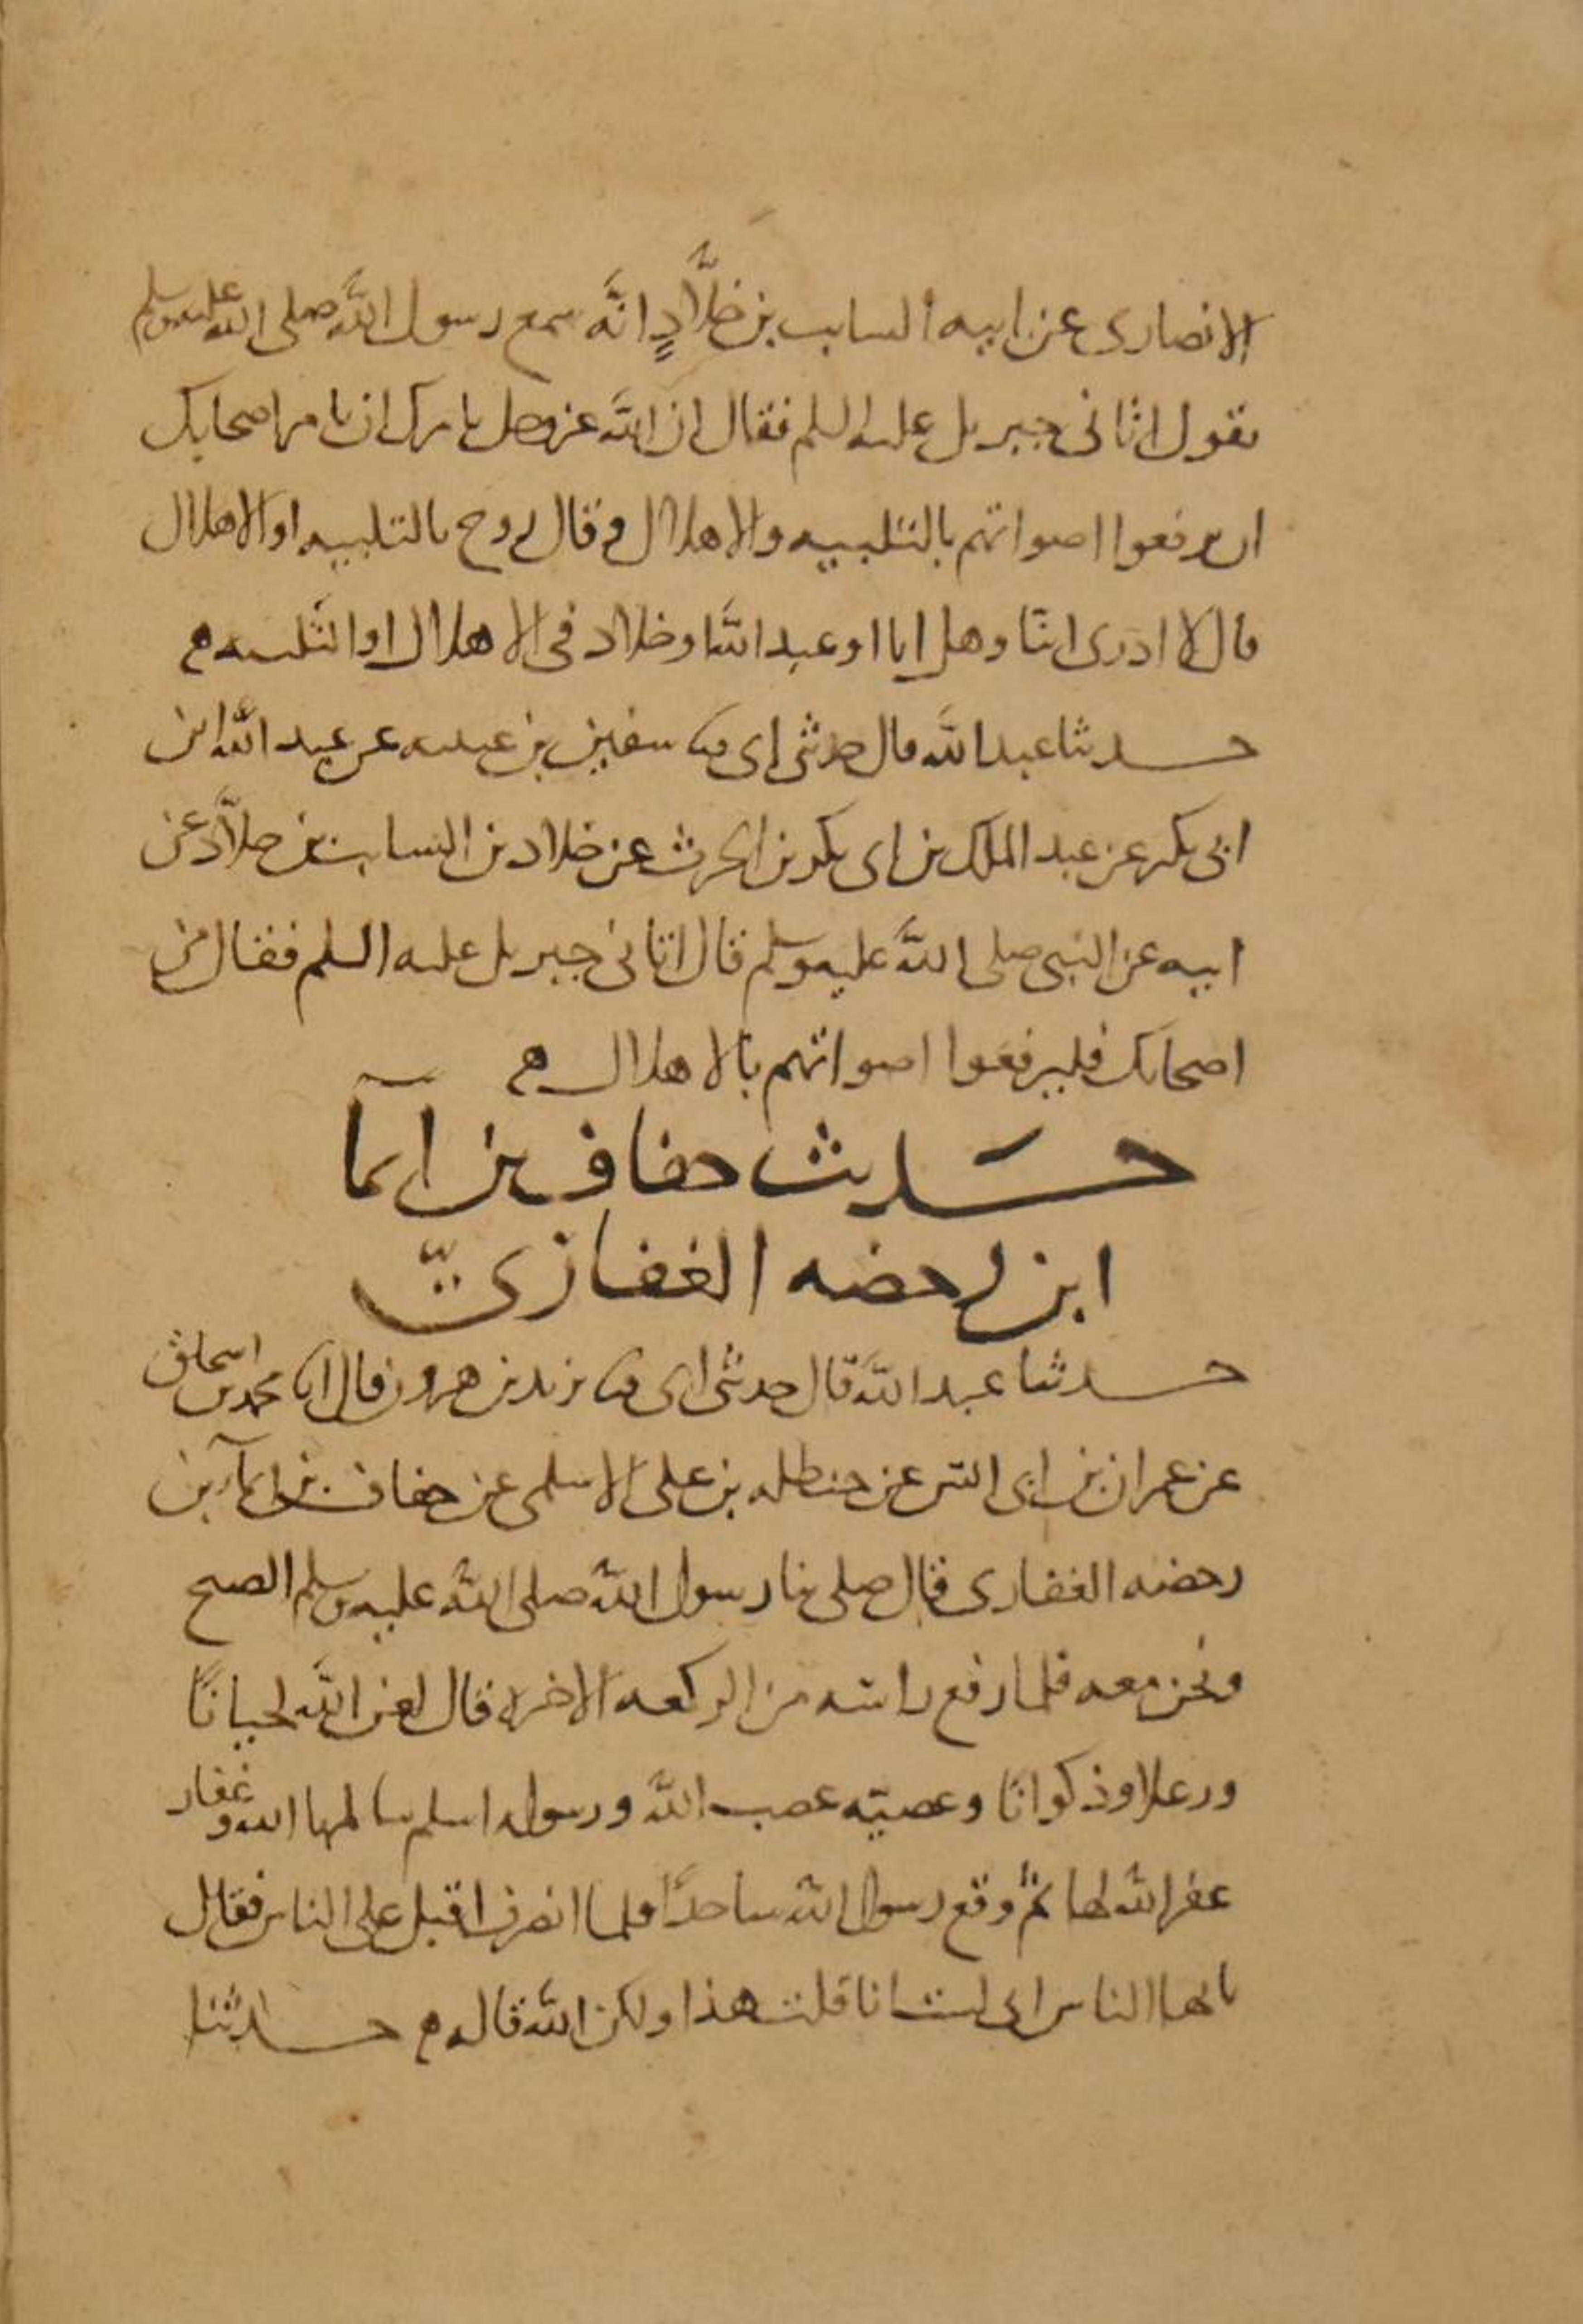 الانصارى عن ابيه السايب بن خلَّادٍ انَّه سمع رسول اللَّه صلى الله عليه وسلم
يقول اتانى جبريل عليه السلم فقال ان اللَّه عز وجل يامرك ان تامر اصحابك
ان يرفعوا اصواتهم بالتلبيه والاهلال وقال روح بالتلبيه او الاهلال
قال لا ادرى اينا وهل انا او عبد اللَّه او خلاد فى الاهلال او التلبيه
حدثنا عبد اللَّه قال حدثنى ابى ثنا سفين بن عيينه عن عبد اللَّه ابن
ابى بكر عن عبد الملك بن ابى بكر بن الحرث عن خلاد بن السايب بن خلاَّد عن
ابيه عن النبى صلى اللَّه عليه وسلم قال اتانى جبريل عليه السلم فقال مر
اصحابك فليرفعوا اصواتهم بالاهلال
حَديث خفاف بن ايمآ
ابن رحضه الغفارىّ
حدثنا عبد اللَّه قال حدثنى ابى ثنا يزيد بن هرون قال انا محمد بن اسحاق
عن عمران بن ابى انس عن حنظله بن على الاسلمى عن خفاف بن ايمآ بن
رحضه الغفارى قال صلى بنا رسول اللَّه صلى اللَّه عليه وسلم الصبح
ونحن معه فلما رفع راسه من الركعه الاخره قال لعن اللَّه لحيانًا
ورعلا وذكوانًا وعصيه عصت اللَّه ورسوله اسلم سالمها الله وغفار
غفر اللَّه لها ثم وقع رسول اللَّه ساجدًا فلما انصرف اقبل على الناس فقال
يايها الناس انى لست انا قلت هذا ولكن اللَّه قاله حدثنا